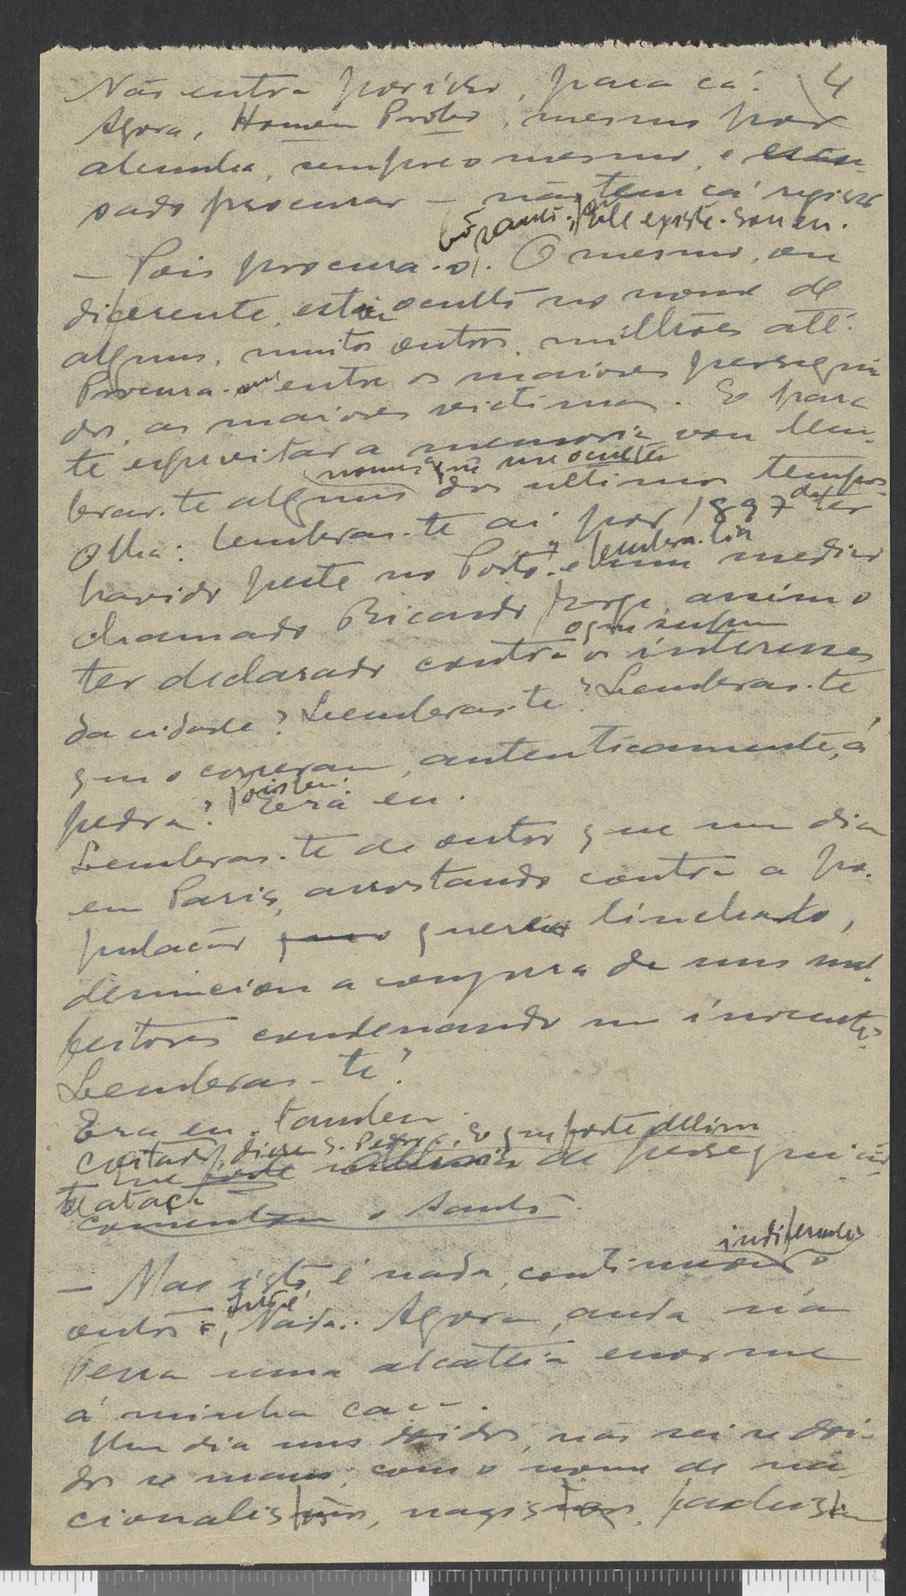 Não entra por isso, para cá. 4
Agora, Homem Probo, mesmo por
alcunha, sempre o mesmo, e escu-
sado procurar — não tem cá registo
Ele existe. Sou eu.
— Pois procura-o. O mesmo, ou
diferente, está oculto no nome de
alguns, muitos outros, milhões até.
Procura-me entre os maiores persegui-
dos, as maiores victimas. E para
te espevitar a memoria vou lem-
nomes que me oculta
brar-te alguns dos ultimos tempos
Olha: lembras-te ai por 1897 de ter
havido peste no Porto e um medico
chamado Ricardo Jorge, assim o
o que supu
ter declarado contra os interesses
da cidade? Lembras-te? Lembras-te
que o correram, autenticamente, á
pedra? Pois bem. Era eu.
Lembras-te de outro que um dia
em Paris, arrostando contra a po-
pulação que o queria linchado,
denunciou a conjura de uns mal-
feitores condenando um inocente?
Lembras-te?
Era eu, tambem.
Coitado, disse S. Pedro. E que forte delirio
de persegui-ção
te ataca
comentou o Santo.
— Mas isto é nada, continuou indiferente o
outro. Nada. Agora, anda n'a
Terra uma alcateia enorme
á minha caça.
Um dia uns doidos, não sei se doi-
dos se maus, com o nome de na-
cionalistas, nazistas, fachistas